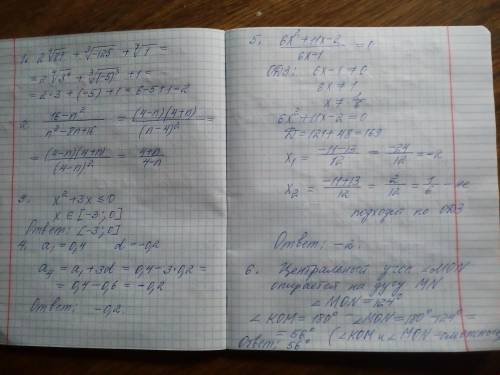 1. 2 ⁴√81 + ³√-125 + ⁷√1 =
= 2 ⁴√3⁴ + ³√(-5)³ + 1 =
= 2·3 + (-5) + 1 = 6-5+1=2
2. (16-n²)/(n²-8n+16) = (4-n)(4+n)/(n-4)² =
= (4-n)(4+n)/(4-n)² = (4+n)/(4-n)
3. x² + 3x ≤ 0
x ∈ [-3; 0]
Ответ: [-3; 0]
4. a₁ = 0,4 d = -0,2
a₄ = a₁ + 3d = 0,4 - 3·0,2 =
= 0,4 - 0,6 = -0,2
Ответ: -0,2.
5. (6x² + 11x - 2)/(6x-1) = 0
ОДЗ: 6x-1 ≠ 0
6x ≠ 1
x ≠ 1/6
6x² + 11x - 2 = 0
D = 121 + 48 = 169
x₁ = (-11-13)/12 = -24/12 = -2
x₂ = (-11+13)/12 = 2/12 = 1/6 - не
подходит по ОДЗ
Ответ: -2.
6. Центральный угол ∠MON
опирается на дугу MN
∠MON = 124°
∠KOM = 180° - ∠MON = 180° - 124° =
= 56° (∠KOM и ∠MON - смежные)
Ответ: 56°